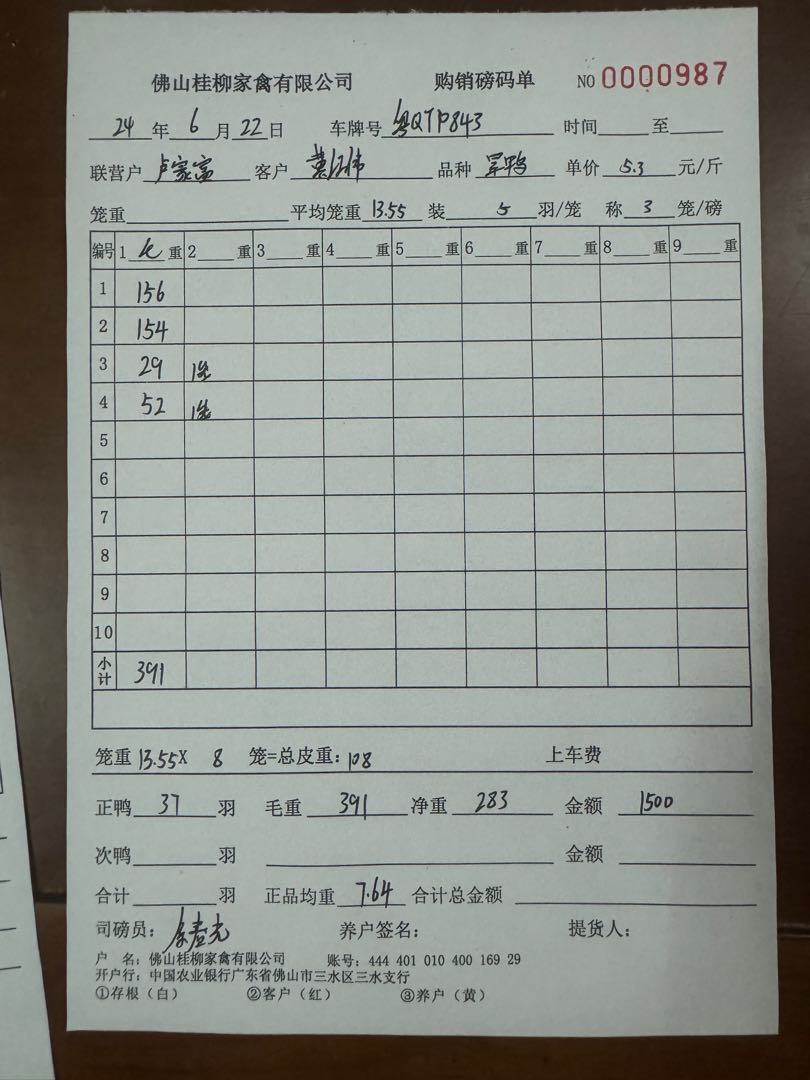 佛山桂柳家禽有限公司 购销磅码单 NO 0000987
24年6月22日 车牌号 粤QTP843 时间 至
联营户 卢家富 客户 品种 旱鸭 单价 5.3 元/斤
笼重 平均笼重 13.55 装 5 羽/笼 称 3 笼/磅
编号 1 重 2 重 3 重 4 重 5 重 6 重 7 重 8 重 9 重
1 156
2 154
3 29 1笼
4 52 1笼
5
6
7
8
9
10
小计 391
笼重 13.55X 8 笼=总皮重: 108 上车费
正鸭 37 羽 毛重 391 净重 283 金额 1500
次鸭 羽 金额
合计 羽 正品均重 7.64 合计总金额
司磅员: 养户签名: 提货人:
户 名: 佛山桂柳家禽有限公司 账号: 444 401 010 400 169 29
开户行: 中国农业银行广东省佛山市三水区三水支行
①存根(白) ②客户(红) ③养户(黄)